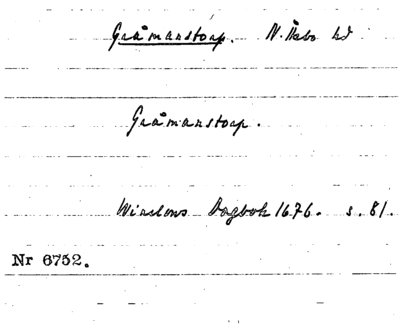 Gråmanstorp. N. Åsbo hd
Gråmanstorp.
Winslows Dagbok 1676. s. 81.
Nr 6752.